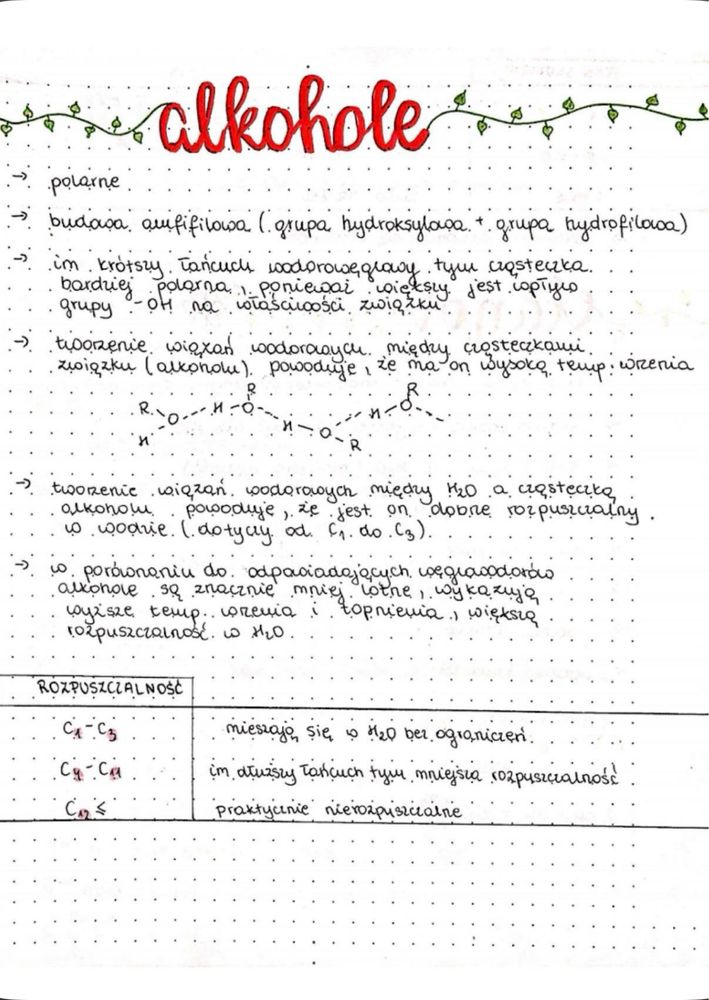 alkohole
→ polarne
→ budowa amfifilowa (grupa hydroksylowa + grupa hydrofilowa)
→ im krótszy łańcuch wodorowęglowy tym cząsteczka
bardziej polarna, ponieważ większy jest wpływ
grupy -OH na właściwości związku
→ tworzenie wiązań wodorowych między cząsteczkami
związku (alkoholu) powoduje, że ma on wysoką temp. wrzenia
R R
R O H-O H-O
H H-O R
→ tworzenie wiązań wodorowych między H₂O a cząsteczką
alkoholu powoduje, że jest on dobrze rozpuszczalny
w wodzie (dotyczy od C₁ do C₃).
→ w porównaniu do odpowiadających węglowodorów
alkohole są znacznie mniej lotne, wykazują
wyższe temp. wrzenia i topnienia, większą
rozpuszczalność w H₂O.
ROZPUSZCZALNOŚĆ
C₁-C₃ mieszają się w H₂O bez ograniczeń.
C₄-C₁₁ im dłuższy łańcuch tym mniejsza rozpuszczalność
C₁₂ ≤ praktycznie nierozpuszczalne